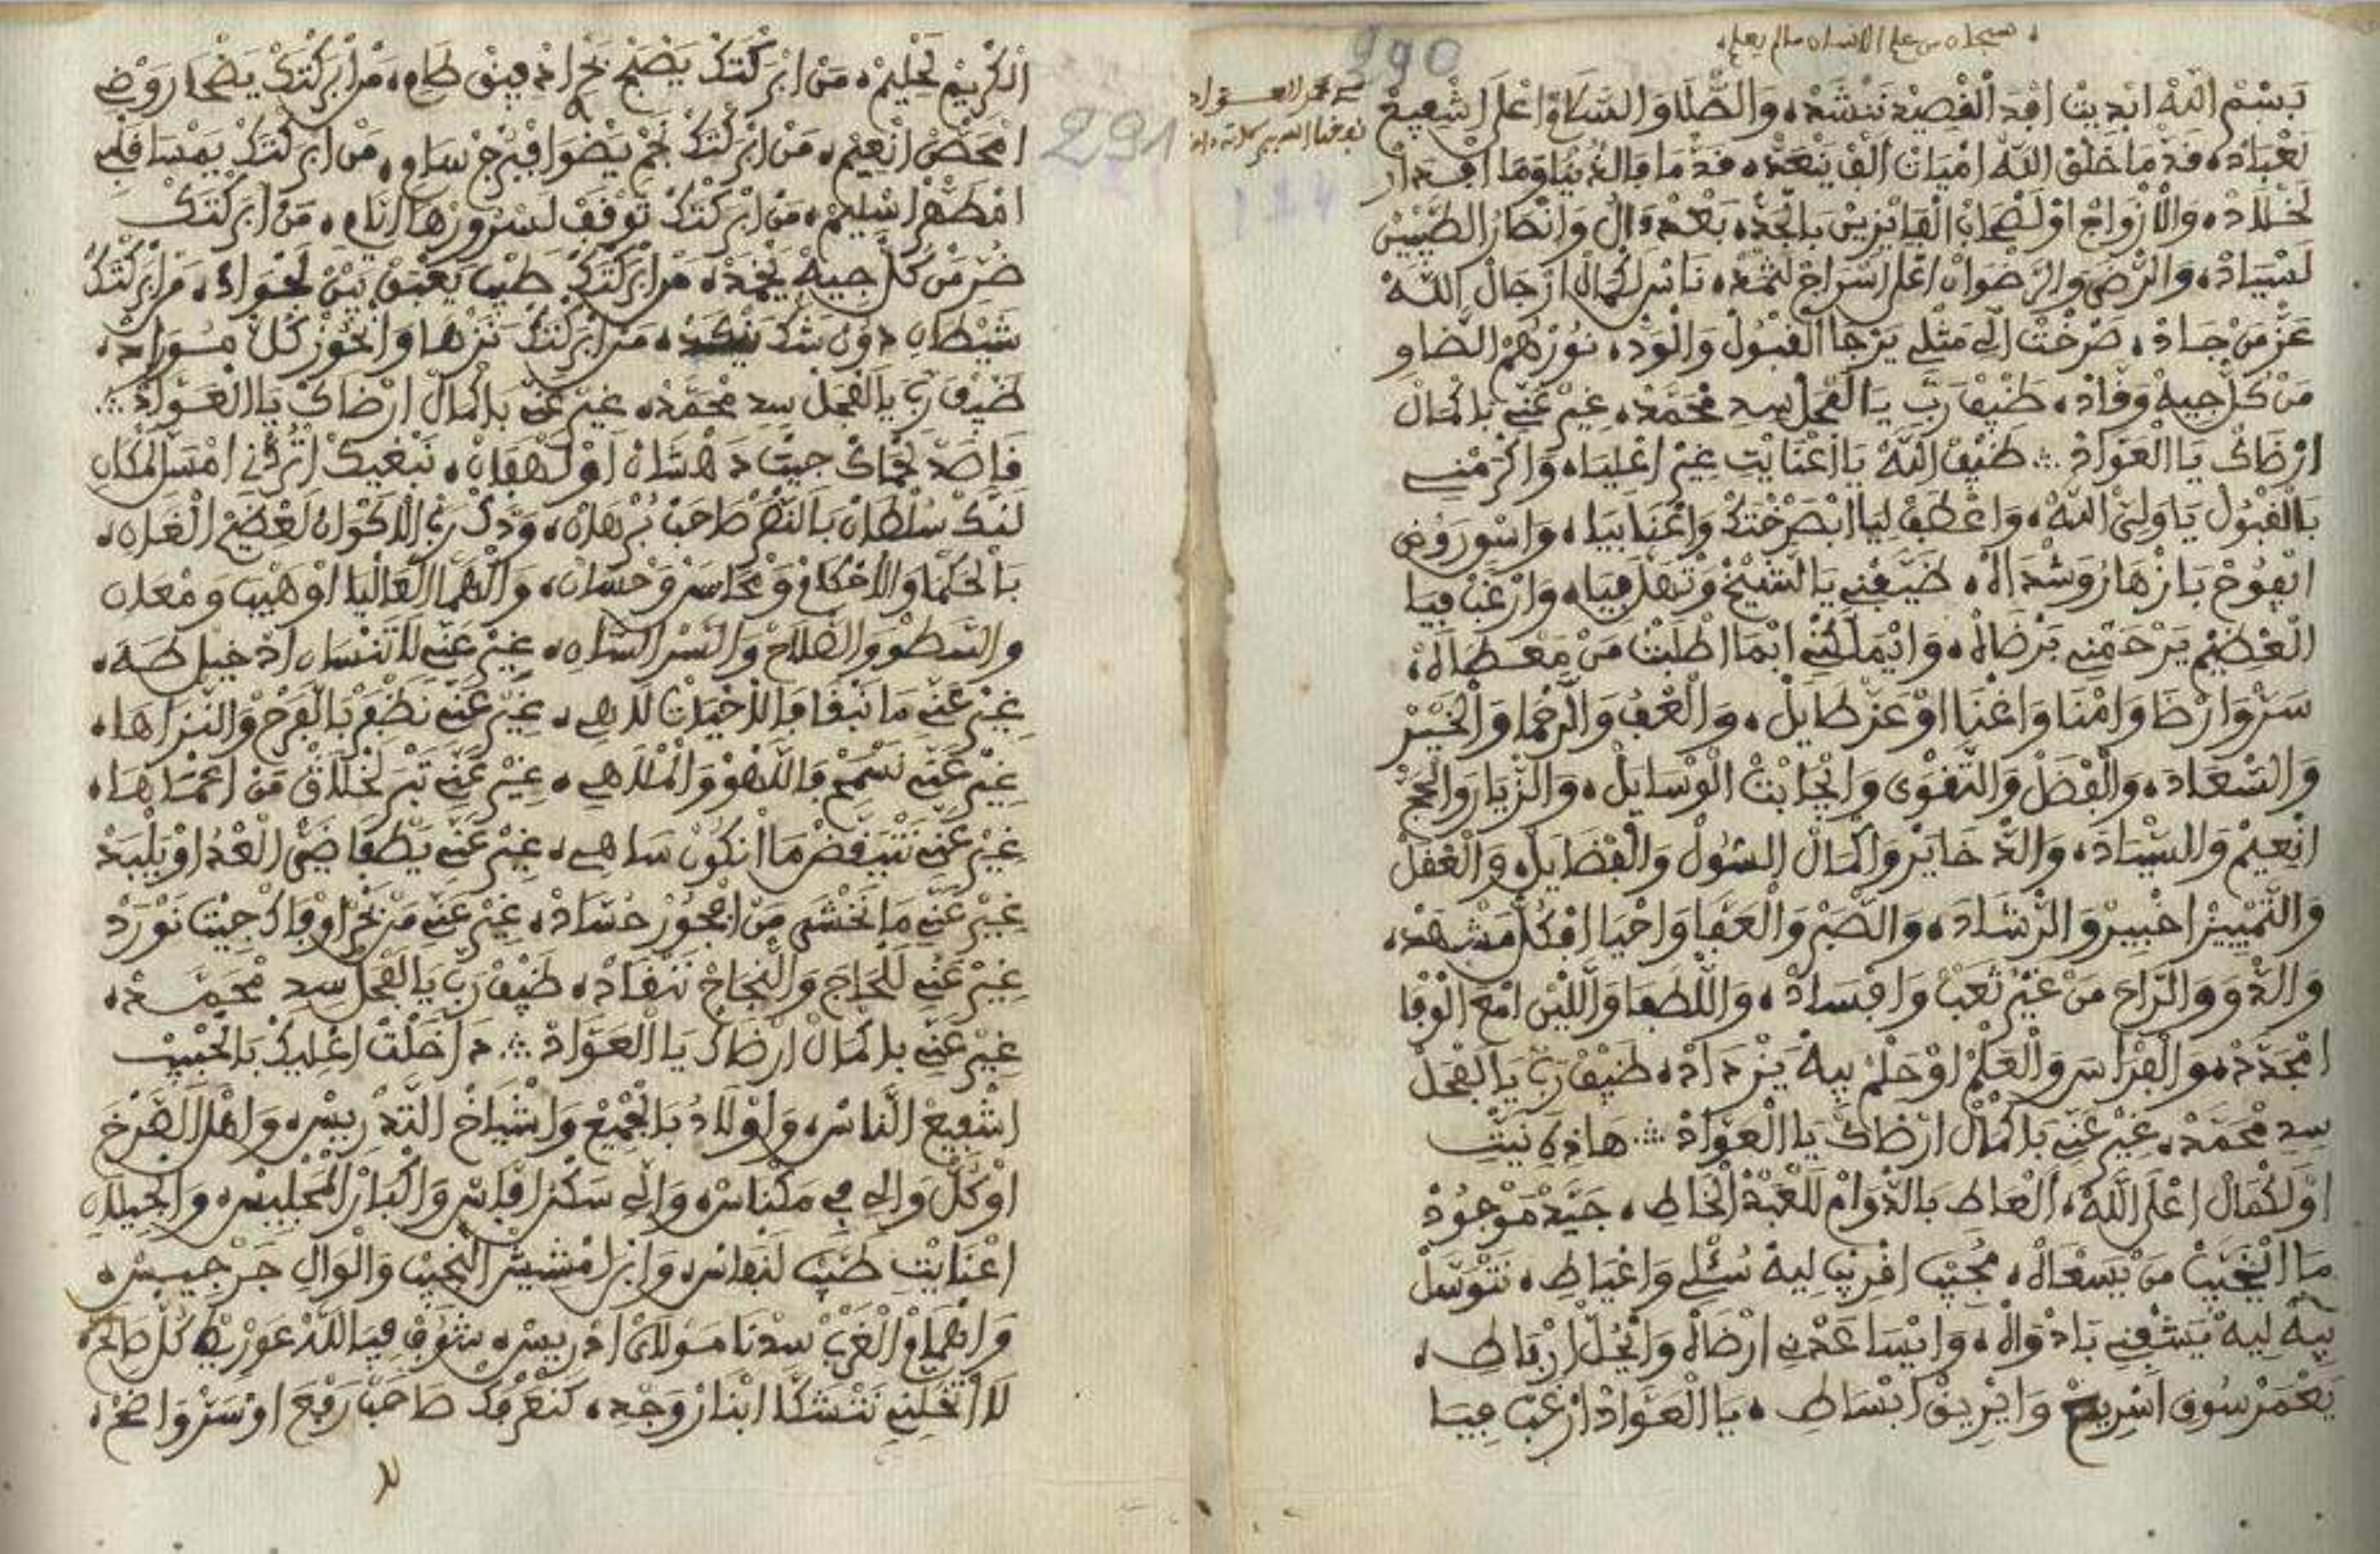 سبحان من علم الانسان ما لم يعلم
290
بسم الله ابديت افد القصيد ننشده والصلا والسلام اعلى اشفيع
لعباد، قد ما خلق الله اميات الف ينعد، قد ما فالدنيا وما افدار
لخلاد، والازواج او لصحاب الفايزين بالجد، بعد وال وانصار الطيبين
لسياد، والرضى والرضوان اعلى اسراج لثمد، ناس لكمال ارجال الله
عز من جاد، صرخت الي مثلي يرجا القبول والود، نورهم الضاو
من كل جيه وفاد، ضيف رب يا الفحل سد محمد، غير غني بكمال
ارضاك يا العواد ∴ ضيف الله يا اعنايت غير اعليا، واكرمني
بالقبول يا ولي الله، واعطف ليا ابصرختك واعنا بيا، واسور روض
ايفوح بازهار وشداه، ضيفني يا الشيخ وتهل فيا، وارغب فيا
العظيم يرحمني برضاه، وايملكني ابما اطلبت من معطاه،
سر وارضا وامنا واغنا او عز طايل، والعفو والرحما والخير
والسعاد، والفضل والتقوى وانجابت الوسايل، والزيار والحج
انعيم والسياد، والدخاير واكمال السول والفضايل، والعقل
والتمييز اخبير والرشاد، والصبر والعفا واحيا افكل مشهد،
والدوو والراح من غير تعب وافساد، واللطفا واللين امع الوفا
امجدد، والفراس والعلم او حلم بيه يزداد، ضيف رب يا الفحل
سد محمد، غير غني بكمال ارضاك يا العواد ∴ هاذه نيت
اولكمال اعلى الله، العاط بالدوام للعبد الخاط، جيد موجود
ما ايخيب من يسعاه، مجيب اقريب ليه سئلي واعياط، نتوسل
بيه ليه يشفني بادواه، وايساعدني ارضاه وانحل ارباط،
يعمر سوق اسريح وايريق ابساط، يا العواد ارغب فيا
291
الكريم لحليم، من ابركتك يصبح بحر ادفيق طام، من ابركتك يضحا روض
امحضن انعيم، من ابركتك نجم يضوا افبرج سام، من ابركتك يمسا قلبي
امطهر اسليم، من ابركتك توقف لسرورها ايام، من ابركتك
ضر من كل جيه يخمد، من ابركتك طيب يعبق بين لجواد، من ابركتك
شيطان دون شك ينكد، من ابركتك نزها وانحوز كل مسوراد،
ضيف رب يا الفحل سد محمد، غير غني بكمال ارضاك يا العواد ∴
قاصد لحماك جيت دهشان او لهفان، نبغيك اتردني امسل لمكان
لنك سلطان بالنصر صاحب برهان، ودك رب الاكوان لعظيم الغان،
بالحكما والاحكام ومحاسن وحسان، والهما العاليا او هيب ومعان
والسطو والصلاح والسر السان، غير غني لا تنسان ادخيل طه،
غير غني ما نبقا فالاخيات لاهي، غير غني نظفر بالفرح والنزاها،
غير غني نسمح فاللهو والملاهي، غير غني تبر لخلاق من اعماها،
غير غني نتيقض ما انكون ساهي، غير غني يطفا ضي العدا او يلبد
غير غني ما نخشى من اهجور حساد، غير غني من بحر اوفاك جيت نورد
غير غني للحاج والنجاح ننقاد، ضيف رب يا الفحل سد محمد،
غير غني بكمال ارضاك يا العواد ∴ دخلت اعليك بالحبيب
اشفيع الناس، واولاد بالجميع واشياخ التدريس، واهل الصرخ
او كل والي في مكناس، والي سكن افاس والكبار المجليس، والجيلال
اعنايت طبيب لنفاس، وابن امشيش النجيب والوال جرجيس،
وانهمام الغرب سدنا مولاى ادريس، بثوف فيا الله
لا تخليني نتشكا ابنار وجد، كنعرفك صاحب رفع او سر واضح،